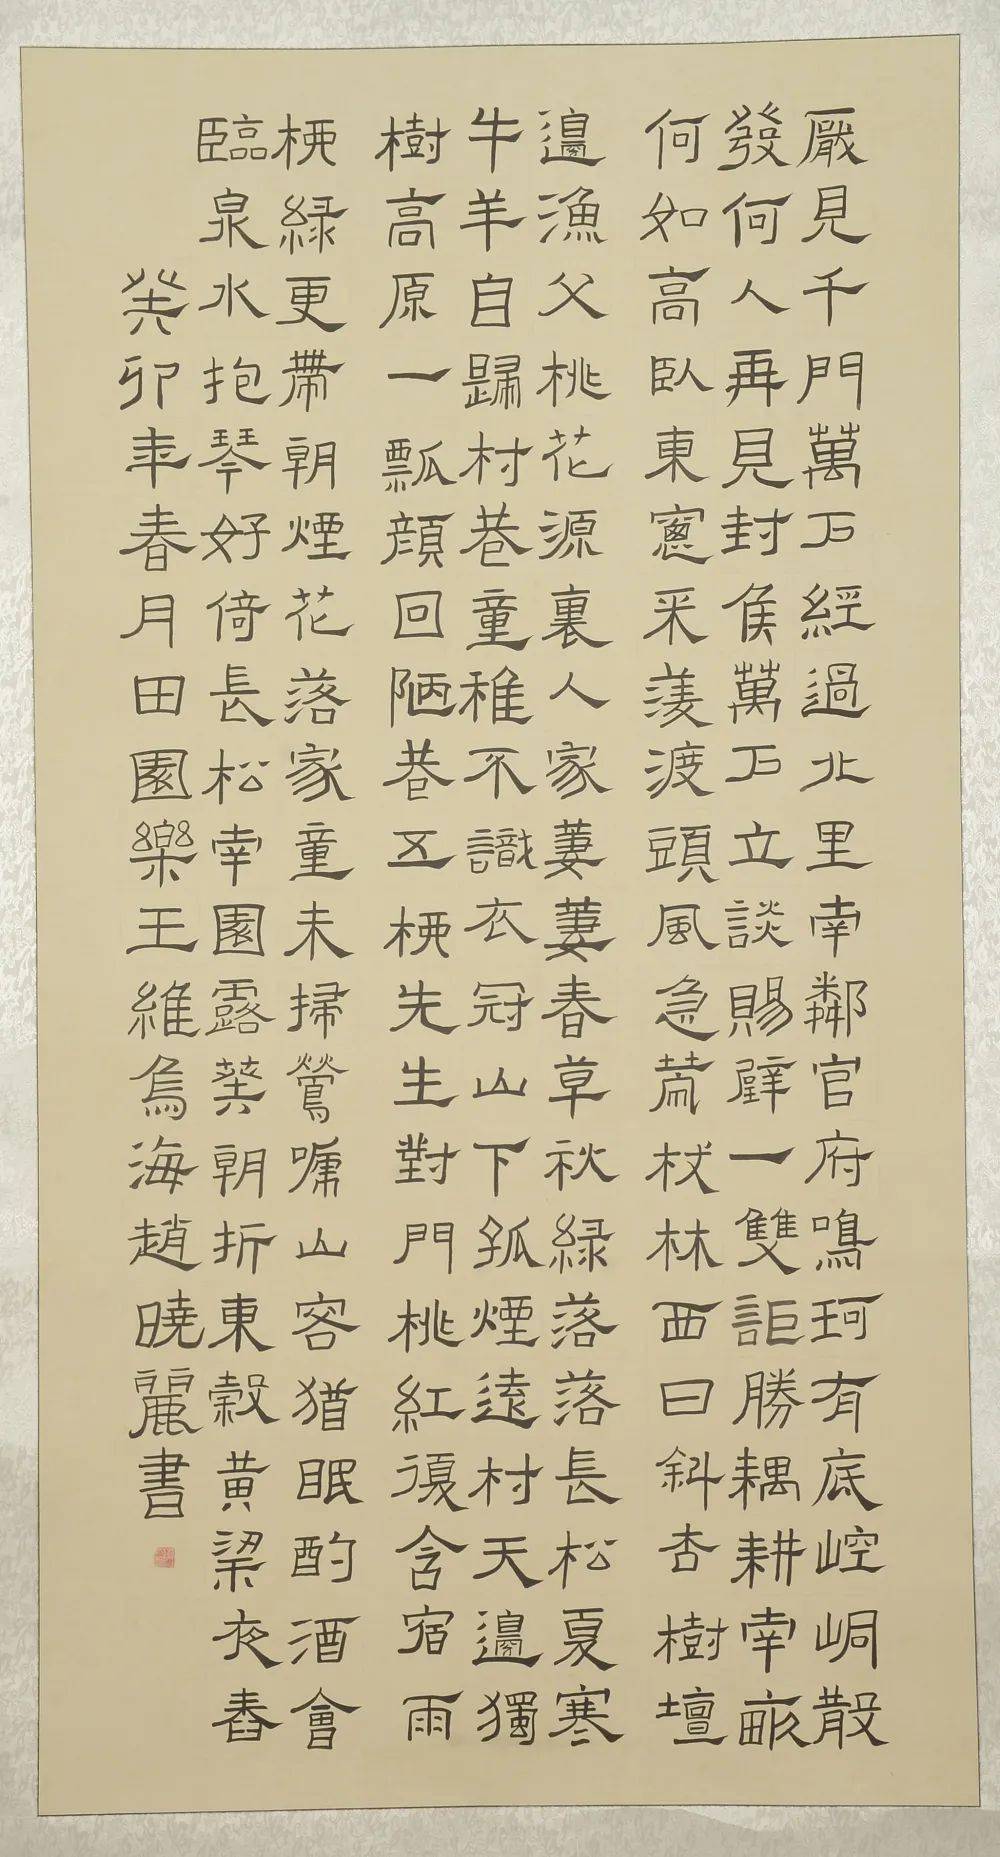 厭見千門萬户經過北里南鄰官府鳴珂有底崆峒散
發何人再見封侯萬户立談賜璧一雙詎勝耦耕南畝
何如高臥東窻采菱渡頭風急杖林西日斜杏樹壇
邊漁父桃花源裏人家萋萋春草秋綠落落長松夏寒
牛羊自歸村巷童稚不識衣冠山下孤煙遠村天邊獨
樹高原一瓢顏回陋巷五柳先生對門桃紅復含宿雨
柳綠更帶朝煙花落家童未掃鶯啼山客猶眠酌酒會
臨泉水抱琴好倚長松南園露葵朝折東穀黃粱夜舂
癸卯年春月田園樂王維烏海趙曉麗書